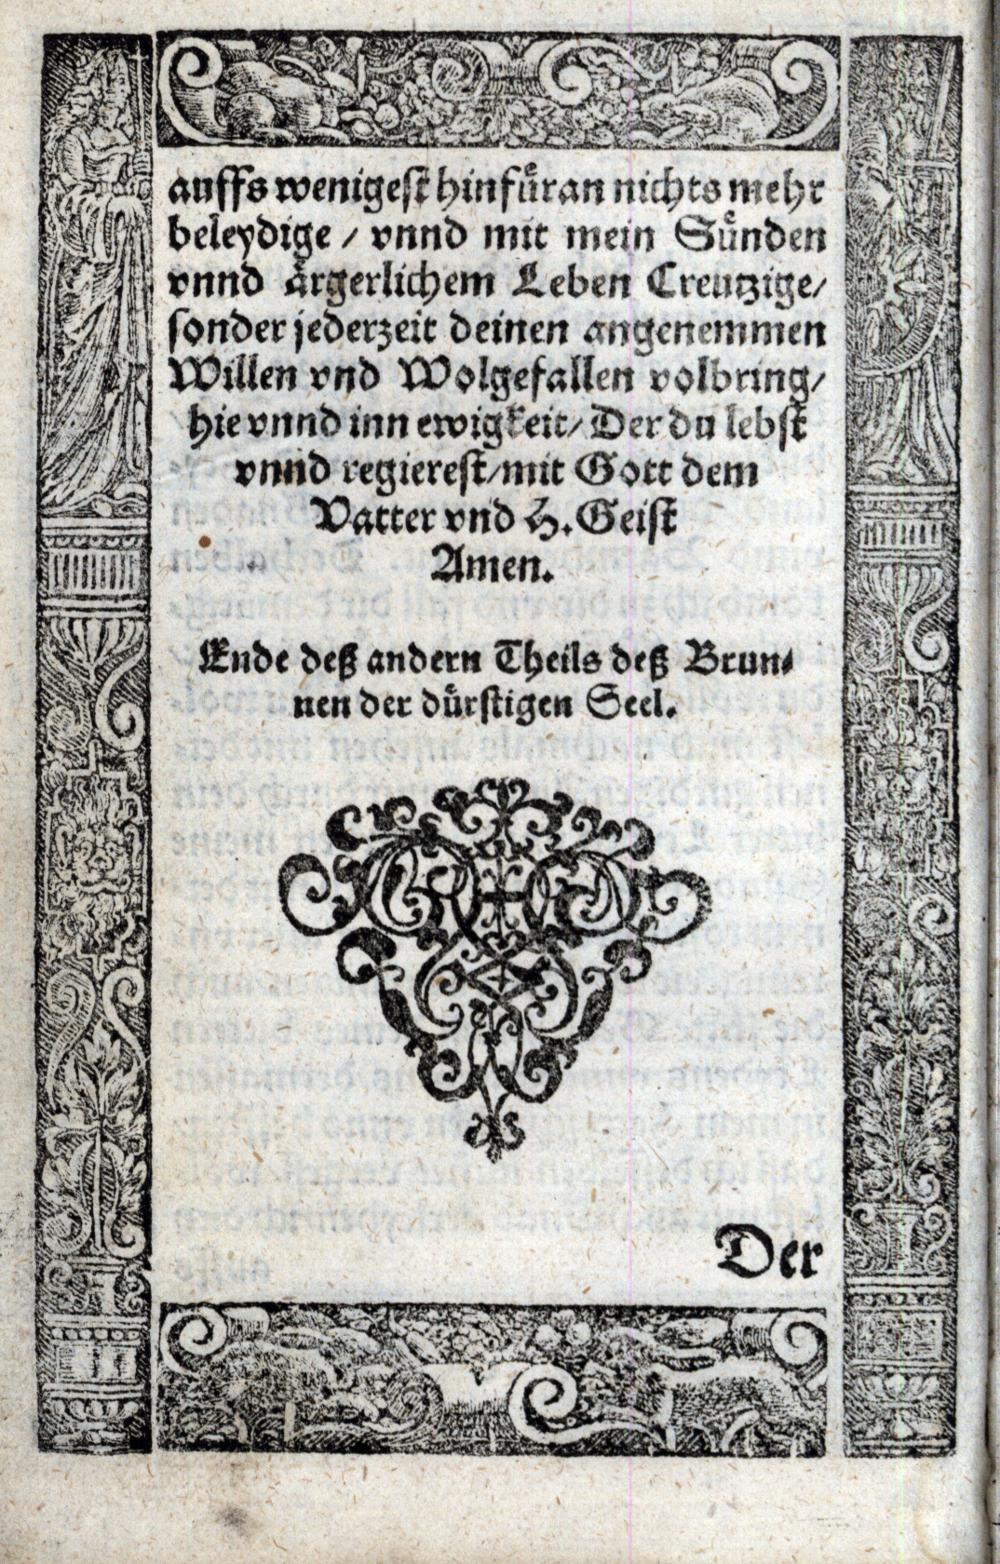 auffs wenigest hinfuͤran nichts mehr
beleydige / vnnd mit mein Suͤnden
vnnd aͤrgerlichem Leben Creutzige/
sonder jederzeit deinen angenemmen
Willen vnd Wolgefallen volbring/
hie vnnd inn ewigkeit/ Der du lebst
vnnd regierest/mit Gott dem
Vatter vnd H. Geist
Amen.
Ende deß andern Theils deß Brun⸗
nen der duͤrstigen Seel.
Der